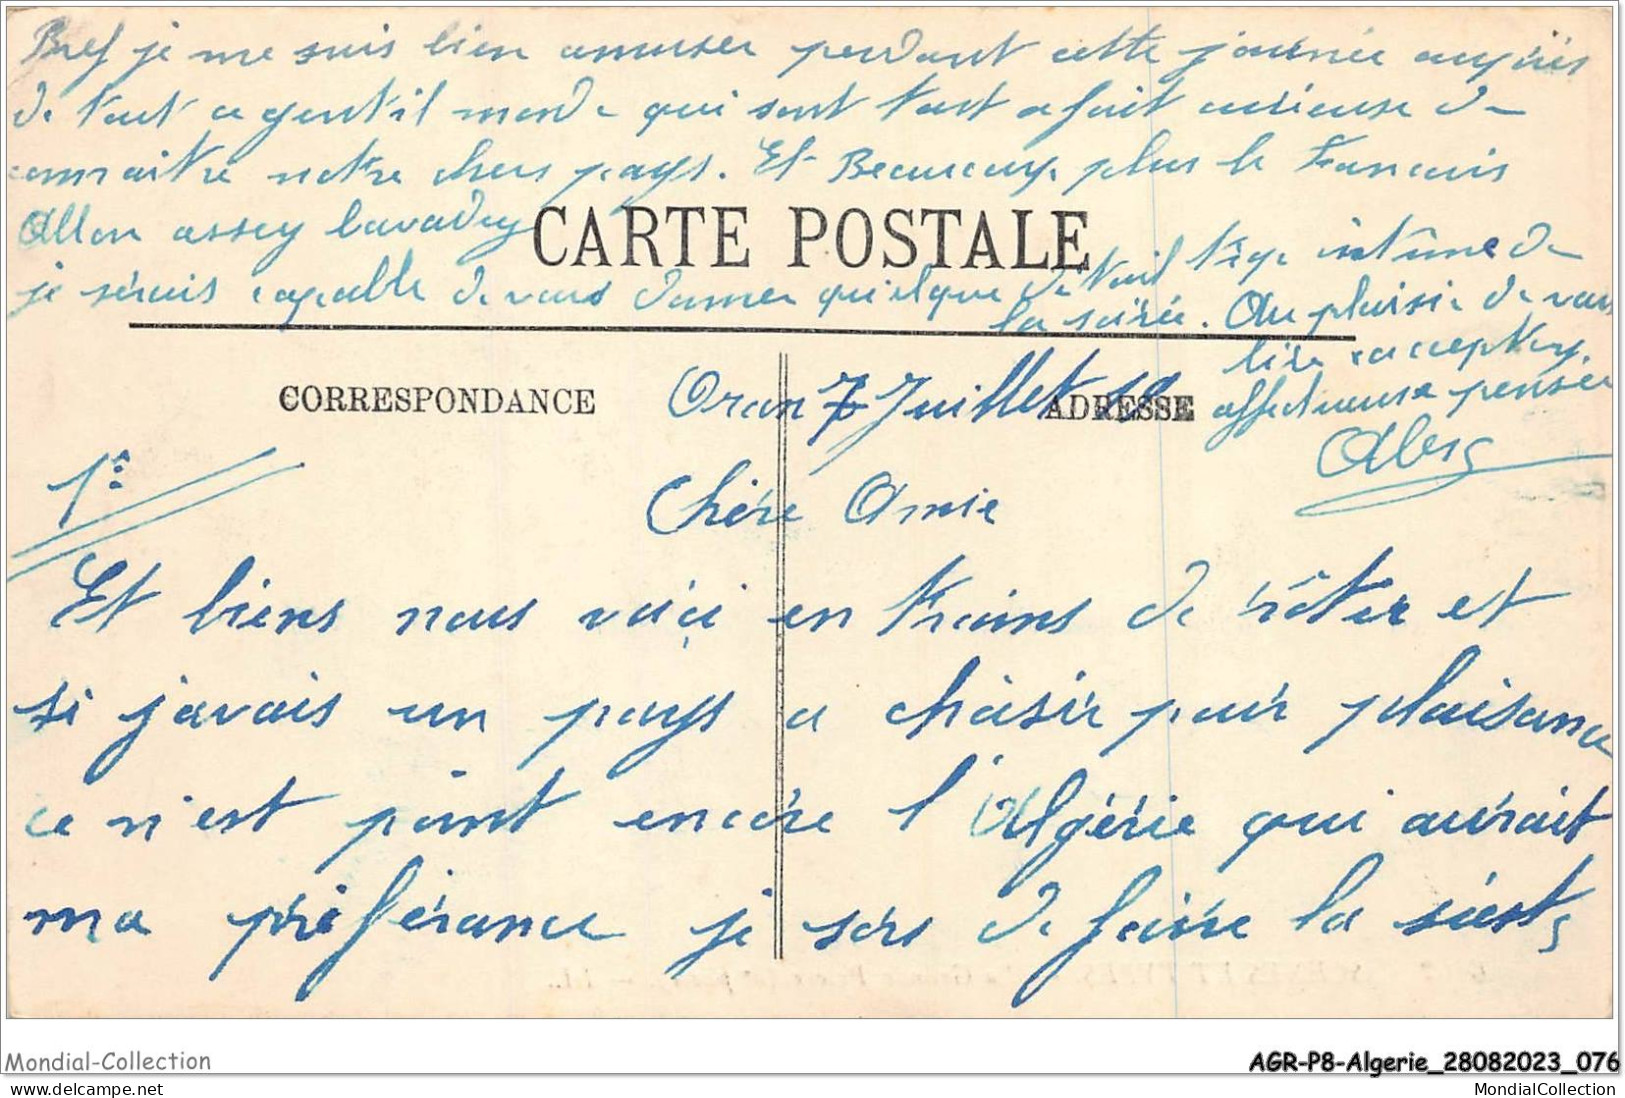 Bref je me suis bien amuser pendant cette journée auprès
de tout ce gentil monde qui sont tout a fait curieuse de
connaitre notre chers pays. Et Beaucoup plus le Francais
Allon assez bavardez
je serais capable de vous donner quelque détail très intime de
la soirée. Au plaisir de vous
lire acceptez
affectueuse pensée
CARTE POSTALE
CORRESPONDANCE
ADRESSE
Oran 7 Juillet 19
1°
Chère Amie
Et biens nous voici en trains de rôter et
si javais un pays a choisir pour plaisance
ce n'est point encore l'Algérie qui aurait
ma préférance je sors de faire la sieste
SCENES ET TYPES
Mondial-Collection
AGR-P8-Algerie_28082023_076
MondialCollection
delcampe.net